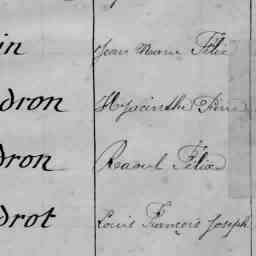 in Jean Marie Félix
dron Hyacinthe Aimé
dron Raoul Félix
drot Louis François Joseph